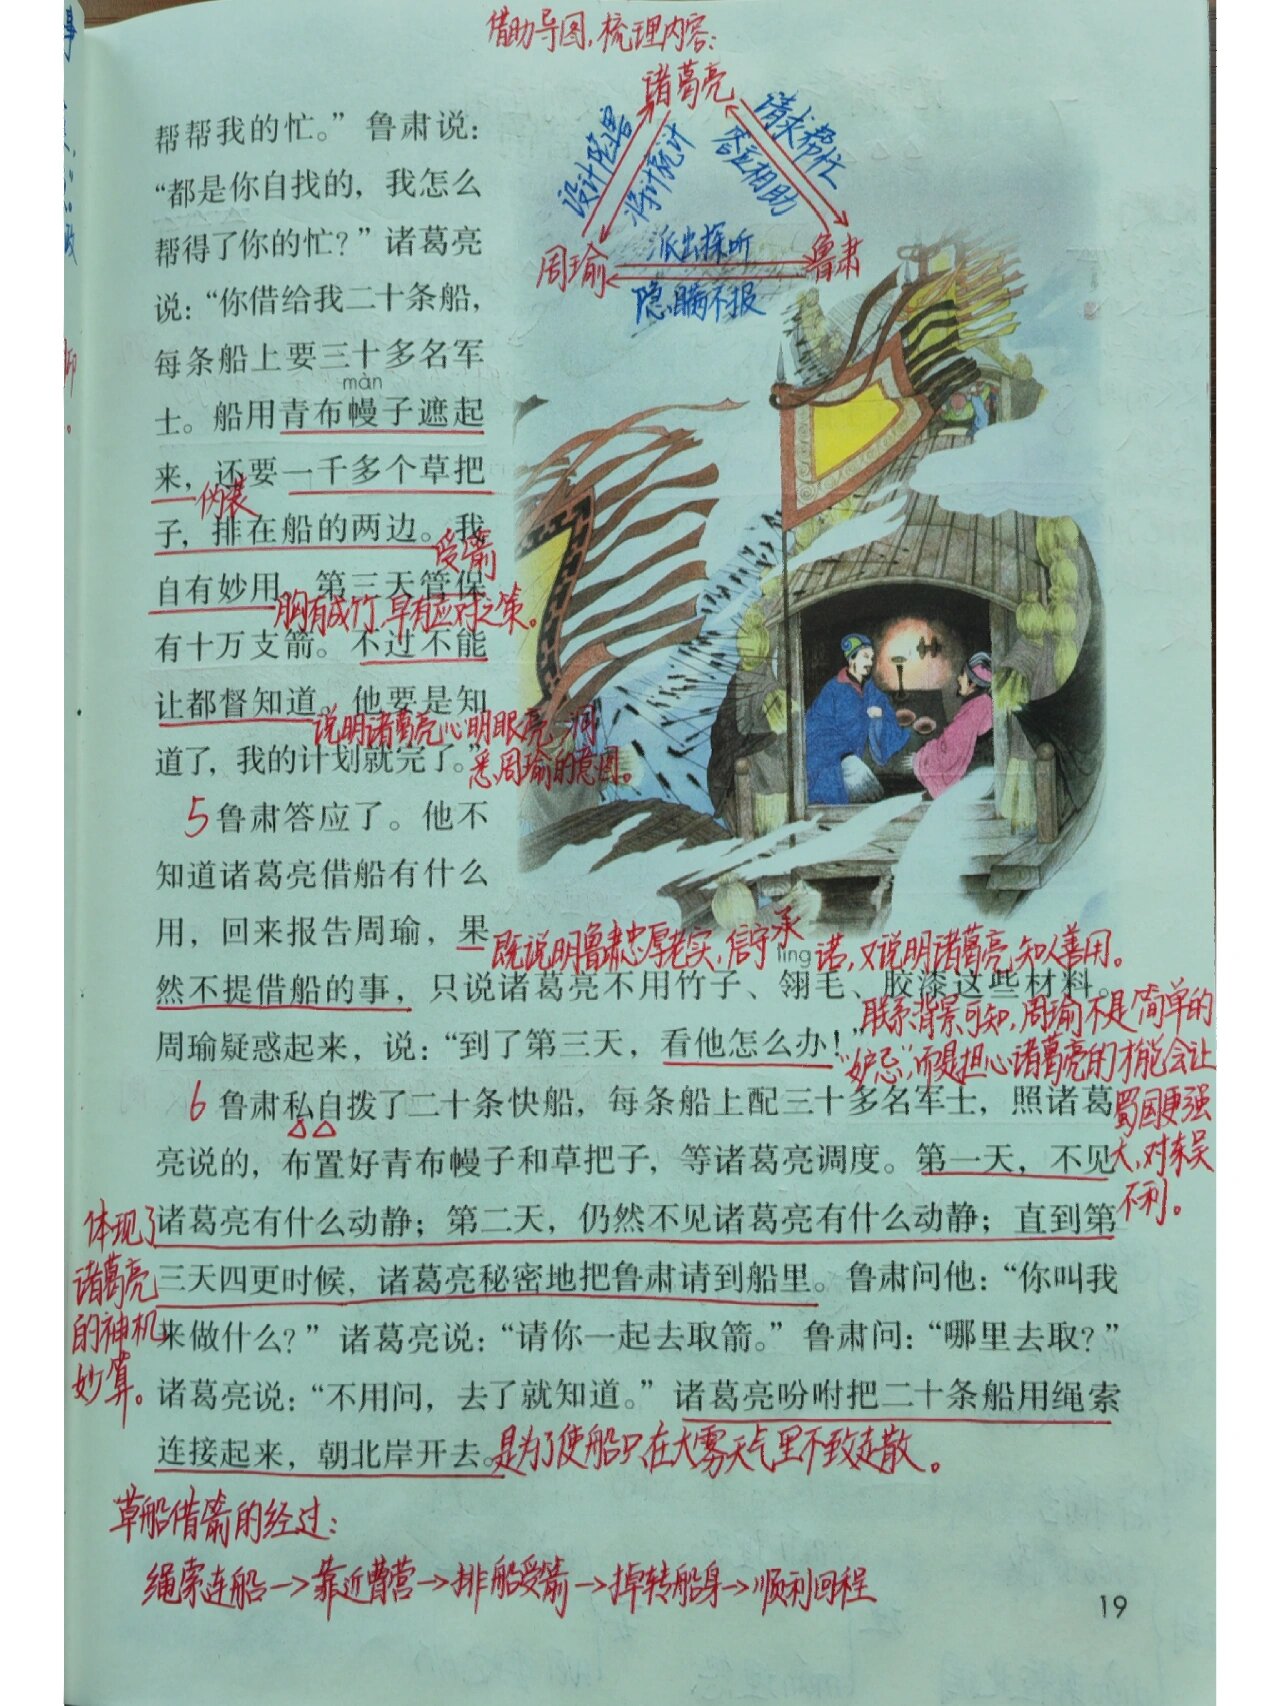 借助导图,梳理内容:
诸葛亮
设计陷害
将计就计
请求帮忙
答应相助
周瑜
派出探听
鲁肃
隐瞒不报
帮帮我的忙。”鲁肃说:
“都是你自找的,我怎么
帮得了你的忙?”诸葛亮
说:“你借给我二十条船,
每条船上要三十多名军
màn
士。船用青布幔子遮起
来,还要一千多个草把
伪装
子,排在船的两边。我
受箭
自有妙用。第三天管保
胸有成竹,早有应对之策。
有十万支箭。不过不能
让都督知道。他要是知
说明诸葛亮心明眼亮,洞
道了,我的计划就完了。”
悉周瑜的意图。
5 鲁肃答应了。他不
知道诸葛亮借船有什么
用,回来报告周瑜,果
既说明鲁肃忠厚老实,信守承诺,又说明诸葛亮知人善用。
líng
然不提借船的事,只说诸葛亮不用竹子、翎毛、胶漆这些材料。
周瑜疑惑起来,说:“到了第三天,看他怎么办!”
联系背景可知,周瑜不是简单的
“妒忌”,而是担心诸葛亮的才能会让
蜀国更强
大,对东吴
不利。
6 鲁肃私自拨了二十条快船,每条船上配三十多名军士,照诸葛
亮说的,布置好青布幔子和草把子,等诸葛亮调度。第一天,不见
诸葛亮有什么动静;第二天,仍然不见诸葛亮有什么动静;直到第
三天四更时候,诸葛亮秘密地把鲁肃请到船里。鲁肃问他:“你叫我
来做什么?”诸葛亮说:“请你一起去取箭。”鲁肃问:“哪里去取?”
诸葛亮说:“不用问,去了就知道。”诸葛亮吩咐把二十条船用绳索
连接起来,朝北岸开去。
体现了
诸葛亮
的神机
妙算。
是为了使船只在大雾天气里不致走散。
草船借箭的经过:
绳索连船→靠近曹营→排船受箭→掉转船身→顺利回程
19